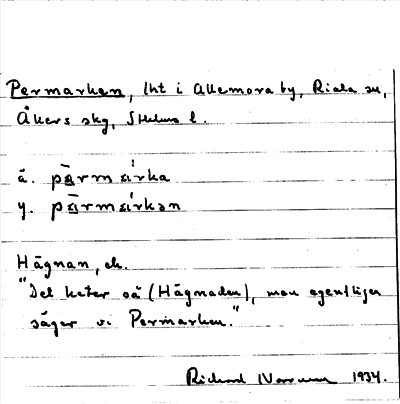 Permarken, lht i Allemora by, Riala sn,
Åkers skg, Sthlms l.
ä. pärmarka
y. pärmarkən
Hägnan, ek.
"Det heter så (Hägnaden), men egentligen
säger vi Permarken."
Richard 1934.